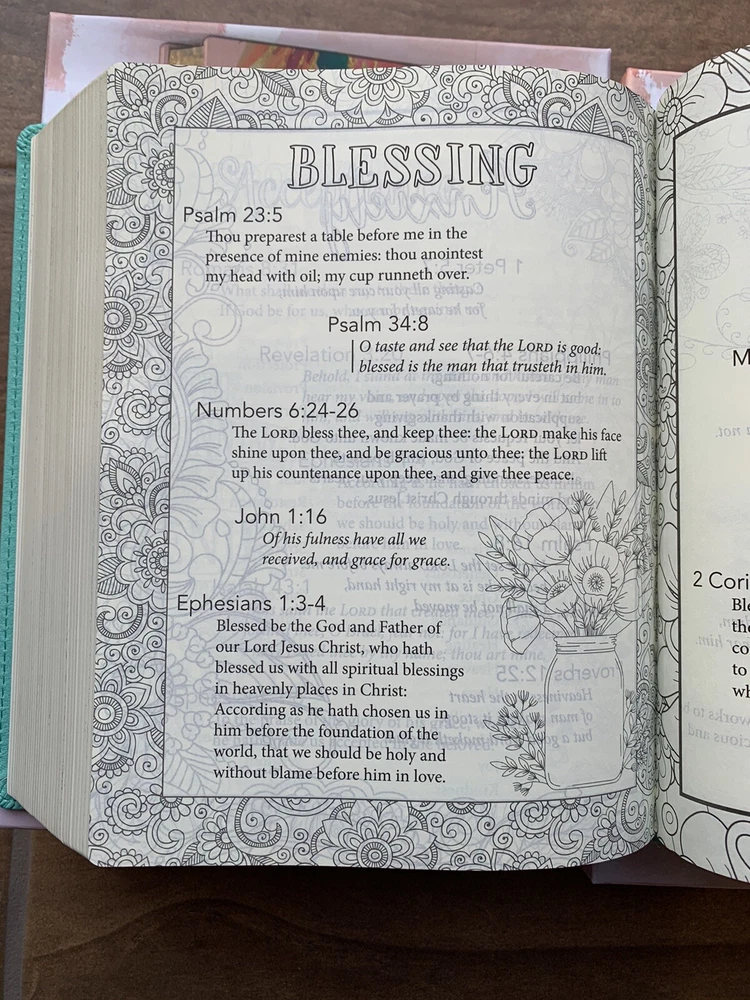 BLESSING
Psalm 23:5
Thou preparest a table before me in the
presence of mine enemies: thou anointest
my head with oil; my cup runneth over.
Psalm 34:8
O taste and see that the LORD is good:
blessed is the man that trusteth in him.
Numbers 6:24-26
The LORD bless thee, and keep thee: the LORD make his face
shine upon thee, and be gracious unto thee: the LORD lift
up his countenance upon thee, and give thee peace.
John 1:16
Of his fulness have all we
received, and grace for grace.
Ephesians 1:3-4
Blessed be the God and Father of
our Lord Jesus Christ, who hath
blessed us with all spiritual blessings
in heavenly places in Christ:
According as he hath chosen us in
him before the foundation of the
world, that we should be holy and
without blame before him in love.
M
2 Cori
Ble
the
co
to
wh